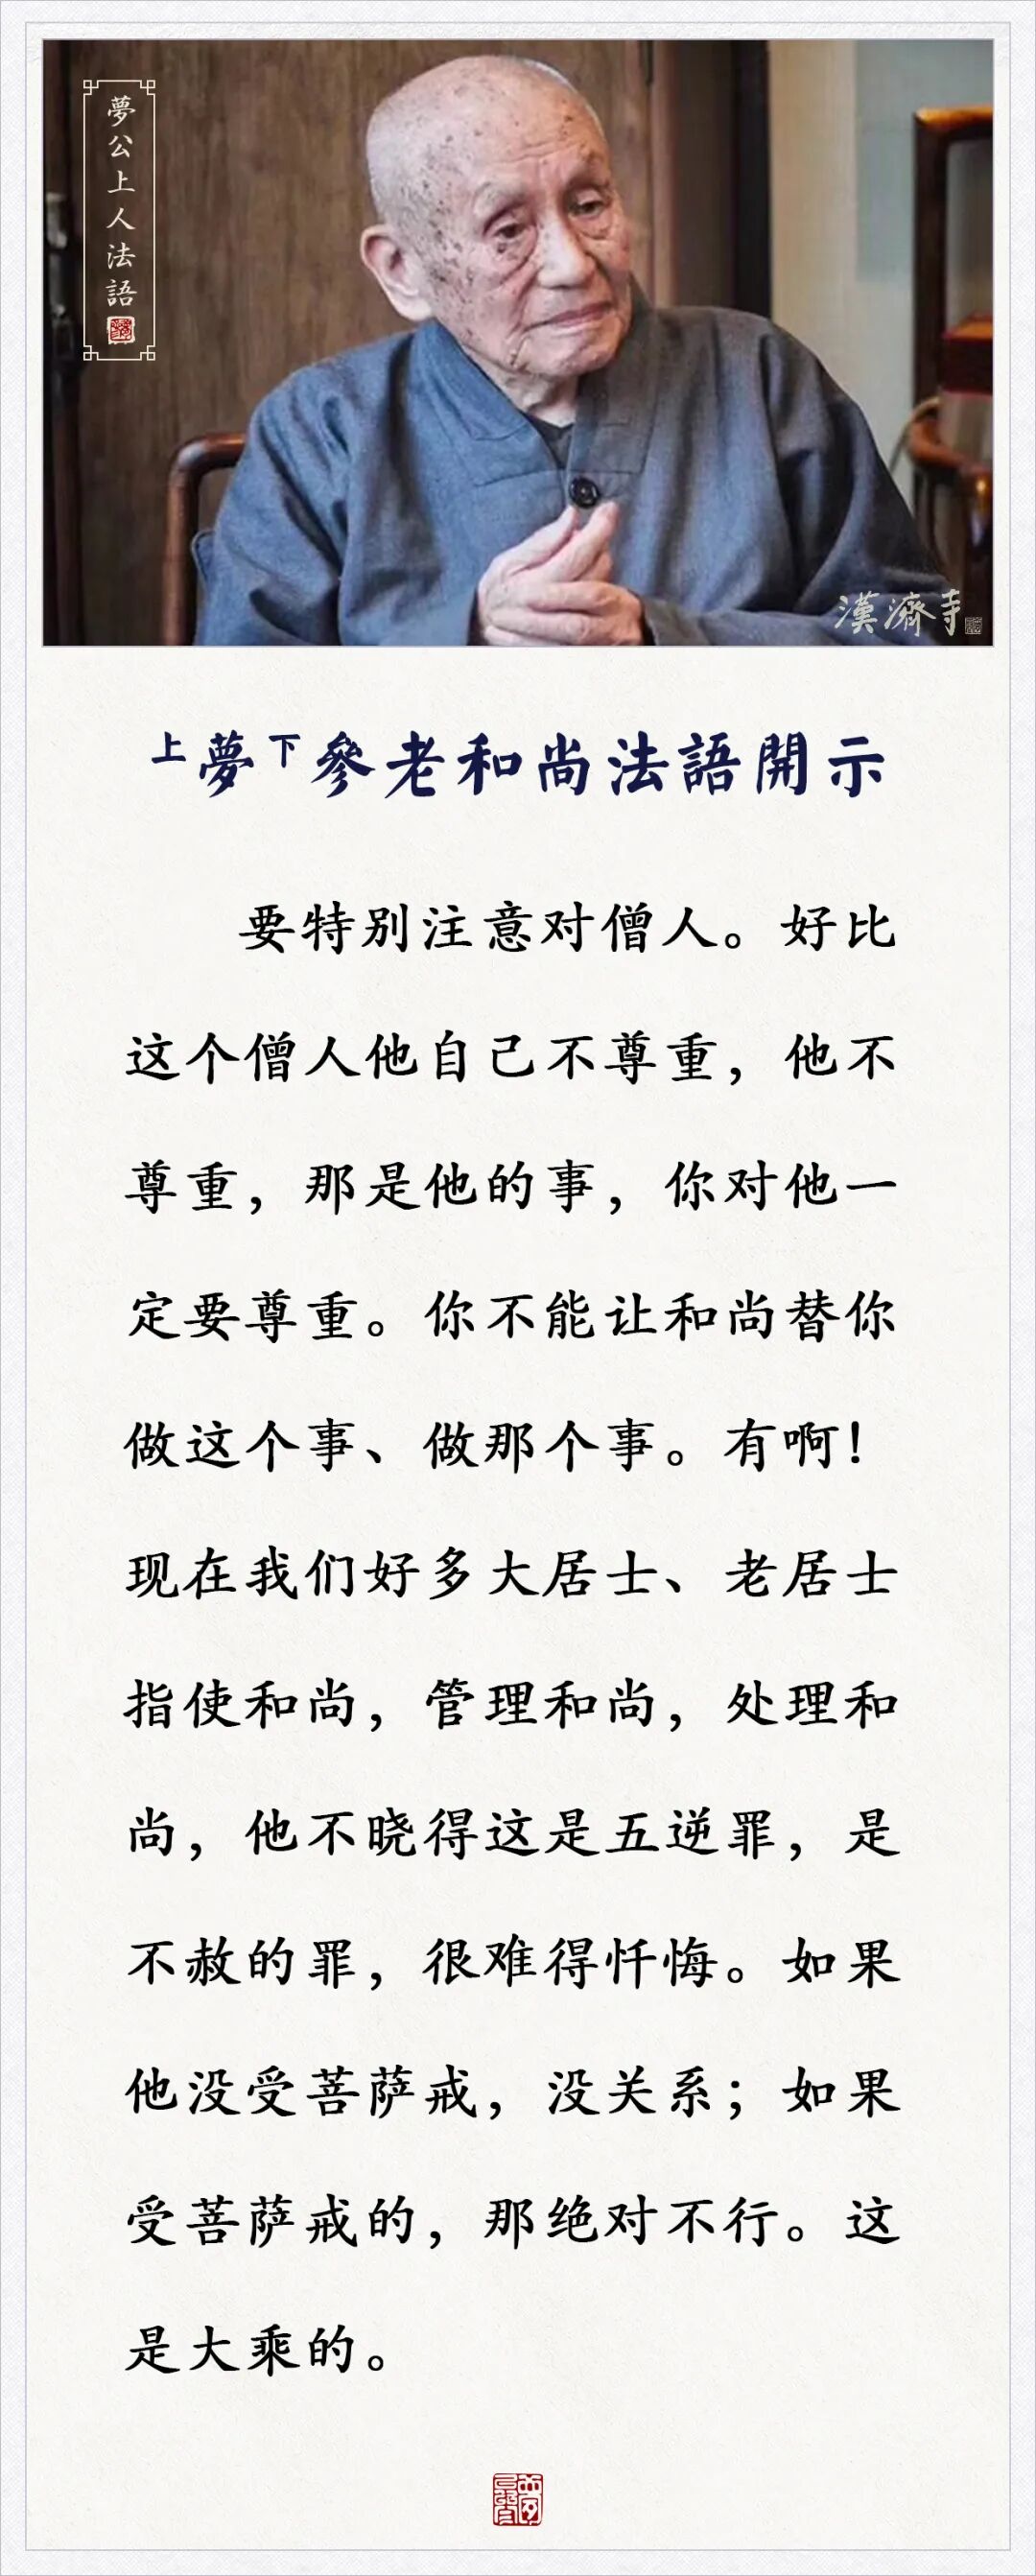 夢公上人法語
漢濟寺
上夢下參老和尚法語開示
要特别注意对僧人。好比
这个僧人他自己不尊重，他不
尊重，那是他的事，你对他一
定要尊重。你不能让和尚替你
做这个事、做那个事。有啊！
现在我们好多大居士、老居士
指使和尚，管理和尚，处理和
尚，他不晓得这是五逆罪，是
不赦的罪，很难得忏悔。如果
他没受菩萨戒，没关系；如果
受菩萨戒的，那绝对不行。这
是大乘的。